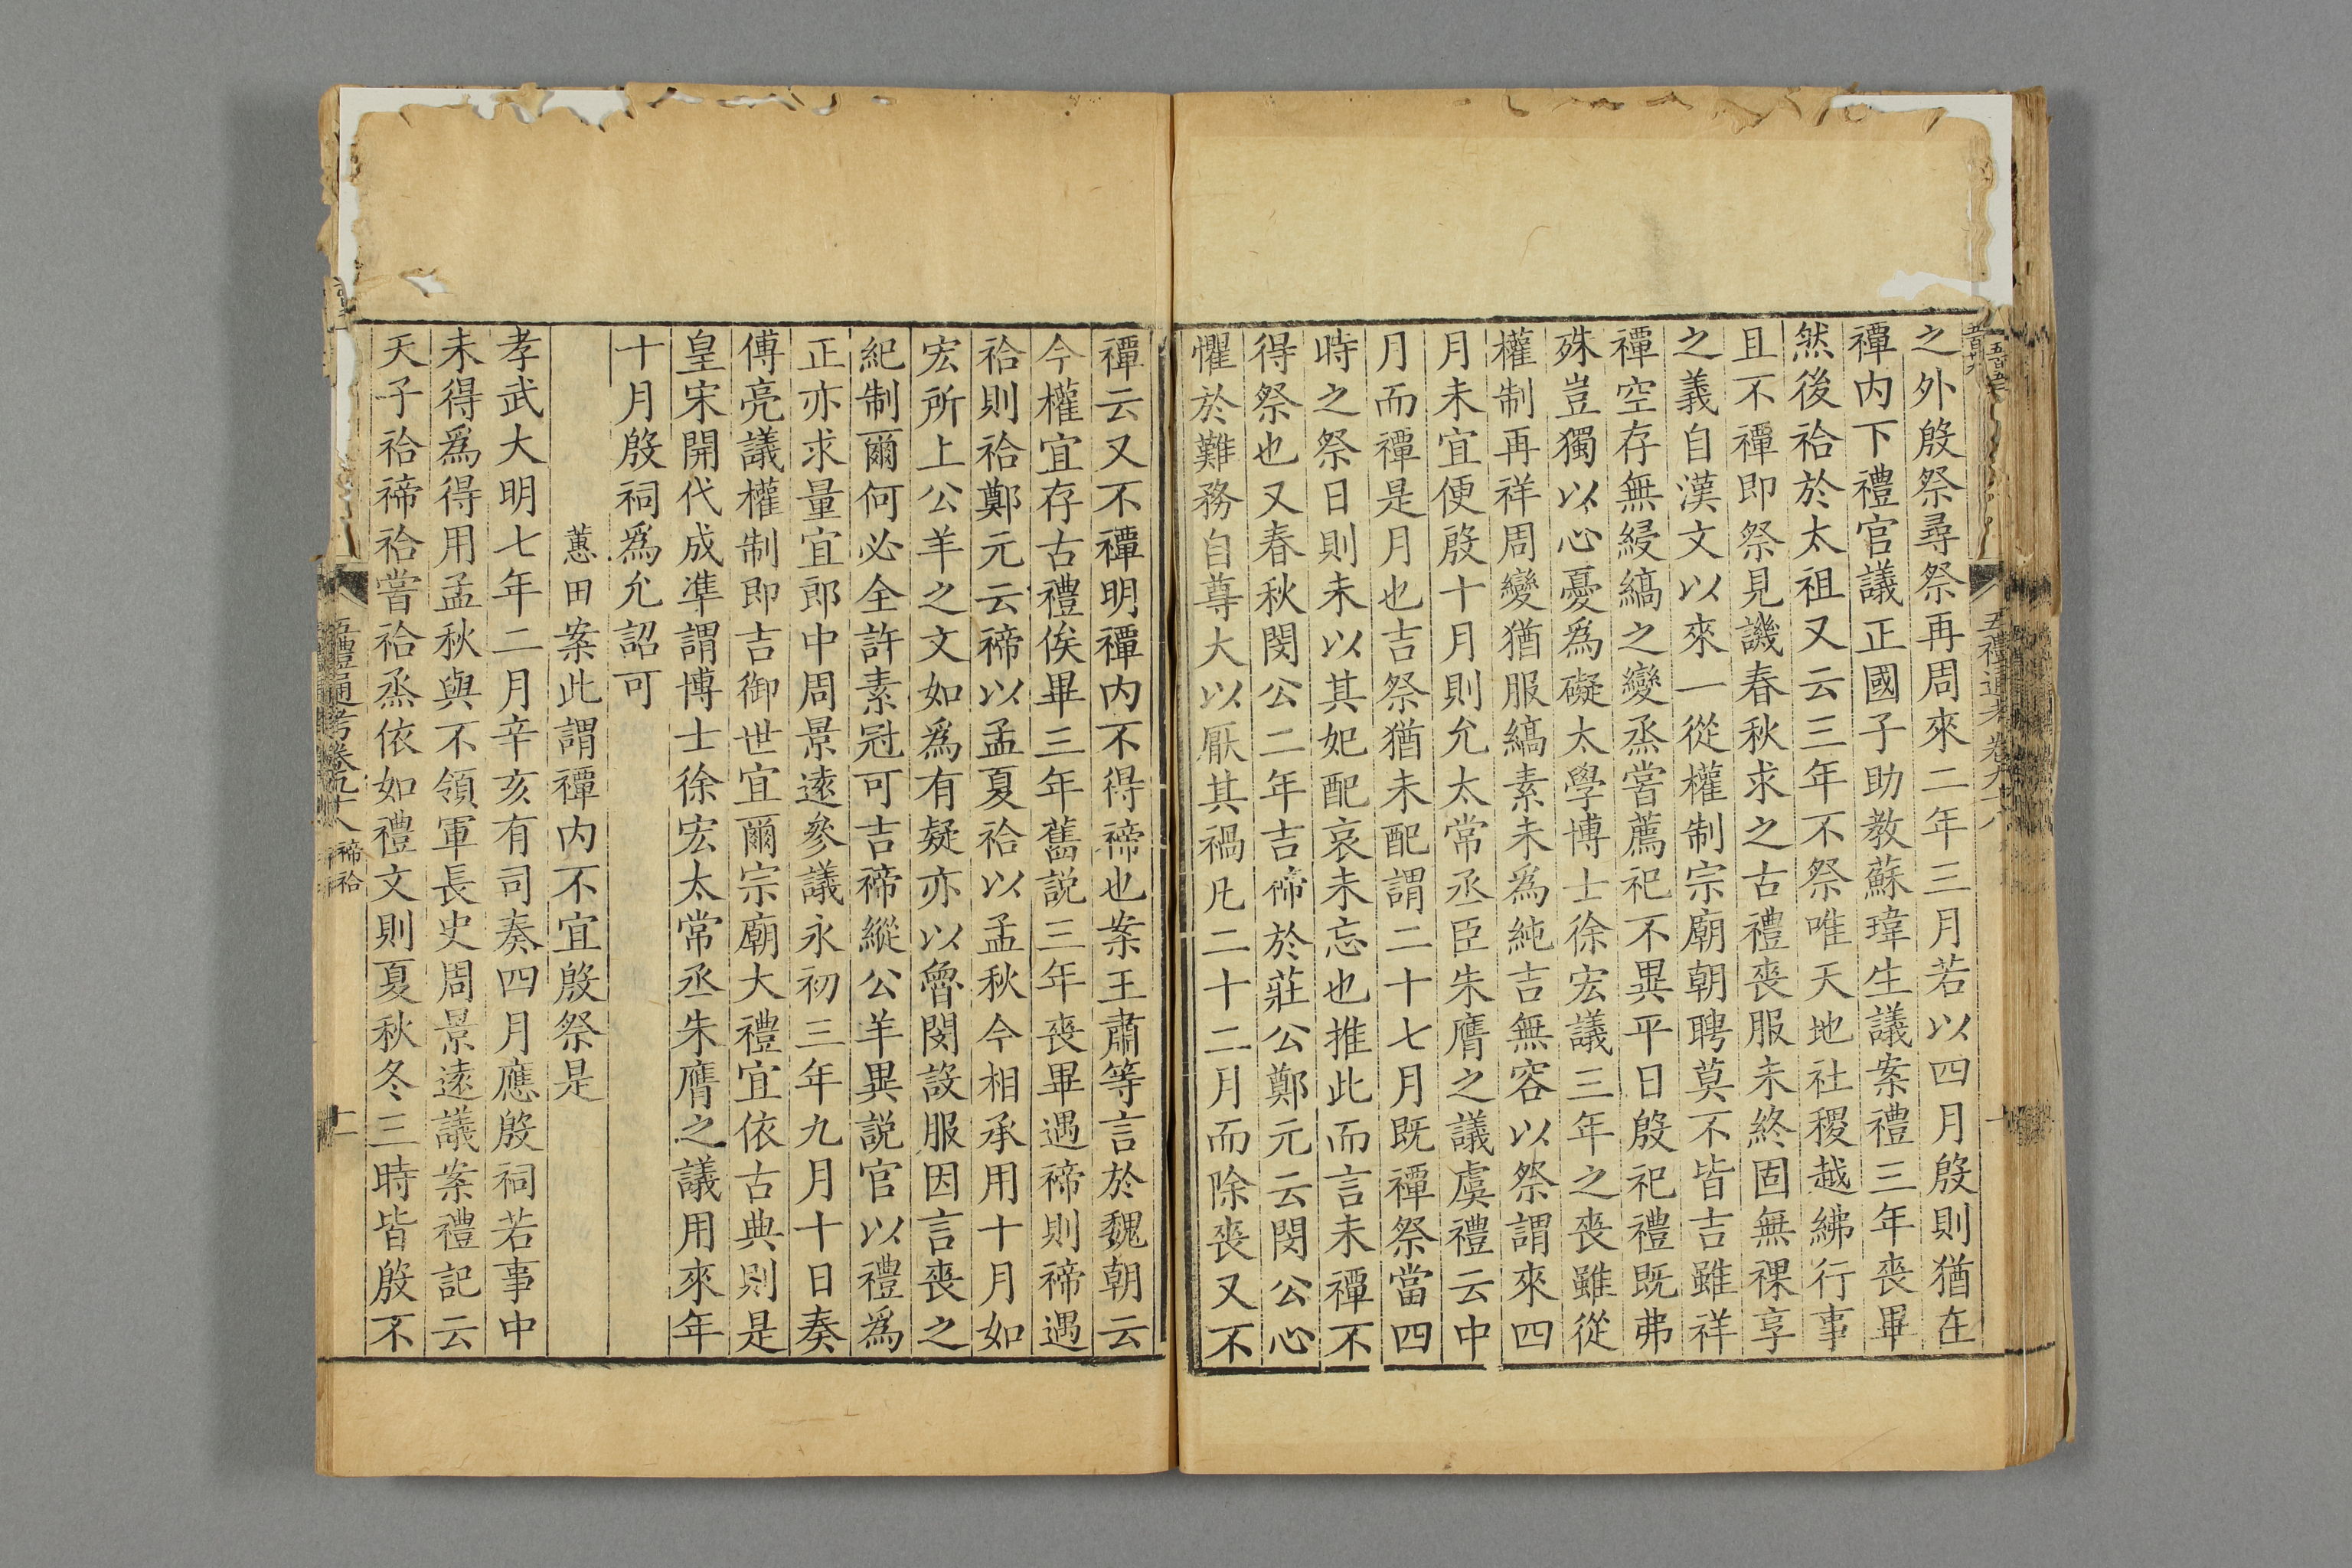 之外殷祭尋祭再周來二年三月若以四月殷則猶在
禫内下禮官議正國子助教蘇瑋生議案禮三年喪畢
然後祫於太祖又云三年不祭唯天地社稷越紼行事
且不禫即祭見譏春秋求之古禮喪服未終固無祼享
之義自漢文以來一從權制宗廟朝聘莫不皆吉雖祥
禫空存無綅縞之變烝嘗薦祀不異平日殷祀禮既弗
殊豈獨以心憂爲礙太學博士徐宏議三年之喪雖從
權制再祥周變猶服縞素未爲純吉無容以祭謂來四
月未宜便殷十月則允太常丞臣朱膺之議虞禮云中
月而禫是月也吉祭猶未配謂二十七月既禫祭當四
時之祭日則未以其妃配哀未忘也推此而言未禫不
得祭也又春秋閔公二年吉禘於莊公鄭元云閔公心
懼於難務自尊大以厭其禍凡二十二月而除喪又不
禫云又不禫明禫内不得禘也案王肅等言於魏朝云
今權宜存古禮俟畢三年舊説三年喪畢遇禘則禘遇
祫則祫鄭元云禘以孟夏祫以孟秋今相承用十月如
宏所上公羊之文如爲有疑亦以魯閔設服因言喪之
紀制爾何必全許素冠可吉禘縱公羊異説官以禮爲
正亦求量宜郎中周景遠參議永初三年九月十日奏
傅亮議權制即吉御世宜爾宗廟大禮宜依古典則是
皇宋開代成準謂博士徐宏太常丞朱膺之議用來年
十月殷祠爲允詔可
蕙田案此謂禫内不宜殷祭是
孝武大明七年二月辛亥有司奏四月應殷祠若事中
未得爲得用孟秋與不領軍長史周景遠議案禮記云
天子祫禘祫嘗祫烝依如禮文則夏秋冬三時皆殷不
五禮通考卷九十八 禘祫 十一